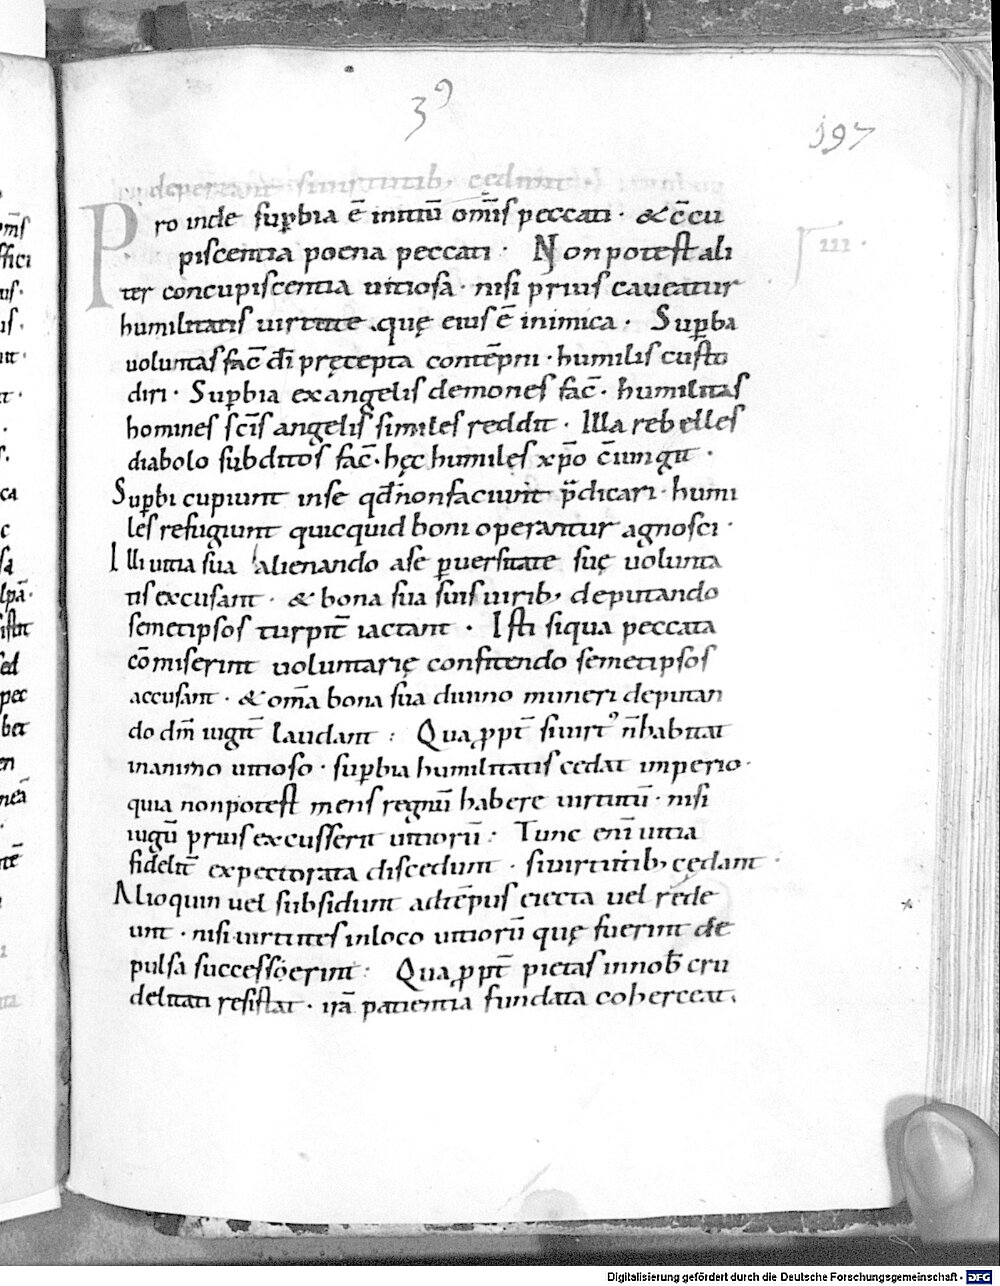 39
197
deperant si virtutib; cędunt
Pro inde sup̱bia ē initiū om̄is peccati · & c̄cu
piscentia poena peccati · Non potest ali
ter concupiscentia uitiosa · nisi prius caueatur
humilitatis uirtute quę eius ē inimica · Sup̱ba
uoluntas fac̄ dī pręcepta contēpni · humilis custo
diri · Sup̱bia ex angelis demones fac̄ · humilitas
homines sc̄is angelis similes reddit · Illa rebelles
diabolo subditos fac̄ · hęc humiles xp̄o c̄iungit ·
Sup̱bi cupiunt in se qd̄ non faciunt p̄dicari · humi
les refugiunt quicquid boni operantur agnosci ·
Illi uitia sua alienando a se p̱uersitate suę uolunta
tis excusant · & bona sua suis uirib; deputando
semetipsos turpit̄ iactant · Isti siqua peccata
cōmiserint uoluntarię confitendo semetipsos
accusant · & om̄a bona sua diuino muneri deputan
do dm̄ iugit̄ laudant : Qua ꝓpt̄ si uirtꝰ n̄ habitat
in animo uitioso · sup̱bia humilitatis cedat imperio ·
quia non potest mens regnū habere uirtutū · nisi
iugū prius excusserit uitiorū : Tunc enī uitia
fidelit̄ expectorata discedunt · si uirtutib; cędant ·
Alioquin uel subsidunt ad tēpus eiecta uel rede
unt · nisi uirtutes in loco uitiorū quę fuerint de
pulsa successerint : Qua ꝓpt̄ pietas in nob̄ cru
delitati resistat · irā patientia fundata coherceat.
III ·
Digitalisierung gefördert durch die Deutsche Forschungsgemeinschaft - DFG